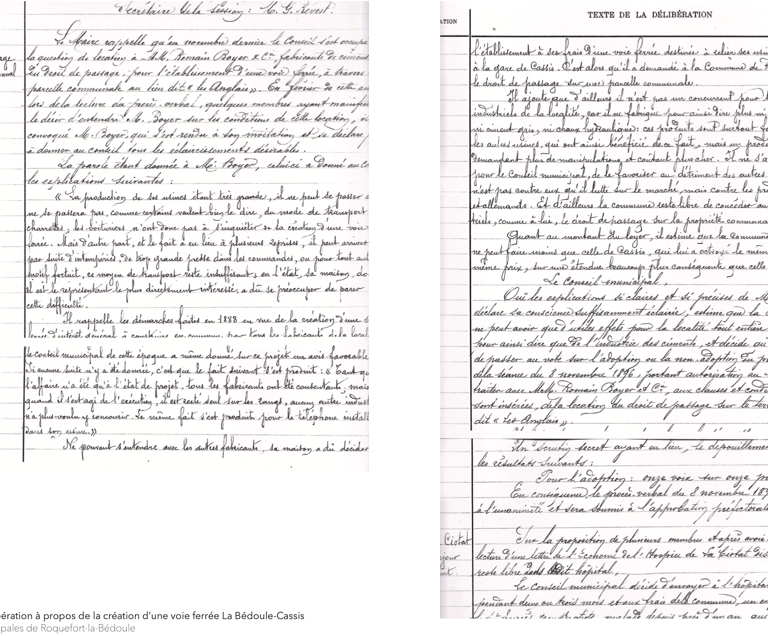 Secrétaire de la séance : M. G. Revest.
Le Maire rappelle qu'en novembre dernier le Conseil s'est occupé
la question de location à MM. Romain Boyer & Cie, fabricants de ciment
du droit de passage, pour l'établissement d'une voie ferrée, à travers
parcelle communale au lieu dit « Les Anglais ». En février de cette
lors de la lecture du procès-verbal, quelques membres ayant manifesté
le désir d'entendre M. Boyer sur les conditions de cette location,
convoqué M. Boyer, qui s'est rendu à son invitation et se déclare
à donner au conseil tous les éclaircissements désirables.
La parole étant donnée à M. Boyer, celui-ci a donné au
les explications suivantes :
« La production de ses usines étant très grande, il ne peut se passer
ne se passera pas, comme certains veulent bien le dire, du mode de transport
charrettes, les voituriers n'ont donc pas à s'inquiéter de la création d'une voie
ferrée. Mais d'autre part, et le fait a eu lieu à plusieurs reprises, il peut arriver
par suite d'intempéries, de trop grande presse dans les commandes, ou pour tout
motif fortuit, ce moyen de transport reste insuffisant ; en l'état, sa maison,
il est le représentant le plus directement intéressé, a dû se préoccuper de parer
cette difficulté.
Il rappelle les démarches faites en 1888 en vue de la création d'une
d'intérêt général à construire en commun, par tous les fabricants de la
le conseil municipal de cette époque a même donné sur ce projet un avis favorable
Si aucune suite n'y a été donnée, c'est que le fait suivant s'est produit :
l'affaire n'a été qu'à l'état de projet, tous les fabricants ont été consentants, mais
quand il s'est agi de l'exécution, il est resté seul sur les rangs, aucun autre
n'a plus voulu y concourir. Le même fait s'est produit pour le téléphone
dans son usine. »
Ne pouvant s'entendre avec les autres fabricants, sa maison a dû décider
TEXTE DE LA DÉLIBÉRATION
l'établissement à ses frais d'une voie ferrée destinée à relier ses usines
à la gare de Cassis. C'est alors qu'il a demandé à la Commune de
le droit de passage sur une parcelle communale.
Il ajoute que d'ailleurs il n'est pas un concurrent pour
industriels de la localité, car il ne fabrique pour ainsi dire plus ni
ni ciment gris, ni chaux hydraulique : ces produits sont surtout
les autres usines, qui ont ainsi bénéficié de ce fait, mais un
demandant plus de manipulations et coûtant plus cher. Il ne s'
pour le Conseil municipal, de le favoriser au détriment des autres
n'est pas contre eux qu'il lutte sur le marché, mais contre les
et allemands. Et d'ailleurs la commune reste libre de concéder
comme à lui, le droit de passage sur la propriété
Quant au montant du loyer, il estime que la commune
ne peut faire moins que celle de Cassis, qui lui a octroyé le même
même prix, sur une étendue beaucoup plus conséquente que celle
Le Conseil municipal,
Ouï les explications si claires et si précises de
déclare sa conscience suffisamment éclairée, estime que la
ne peut avoir que d'utiles effets pour la localité tout entière
pour ainsi dire que de l'industrie des ciments, et décide
de passer au vote sur l'adoption ou la non-adoption du
de la séance du 8 novembre 1896, portant autorisation au
traiter avec MM. Romain Boyer & Cie, aux clauses et
sont insérées, de la location du droit de passage sur le
dit « Les Anglais ».
Un scrutin secret ayant eu lieu, le dépouillement
les résultats suivants :
Pour l'adoption : onze voix sur onze
En conséquence, le procès-verbal du 8 novembre
à l'unanimité et sera soumis à l'approbation
Ciotat
Sur la proposition de plusieurs membres et après avoir
lecture d'une lettre de l'Économe de l'Hospice de La Ciotat
reste libre dans ledit hôpital,
Le Conseil municipal décide d'envoyer à l'
pendant deux ou trois mois et aux frais de la commune,
ération à propos de la création d'une voie ferrée La Bédoule-Cassis
ipales de Roquefort-la-Bédoule